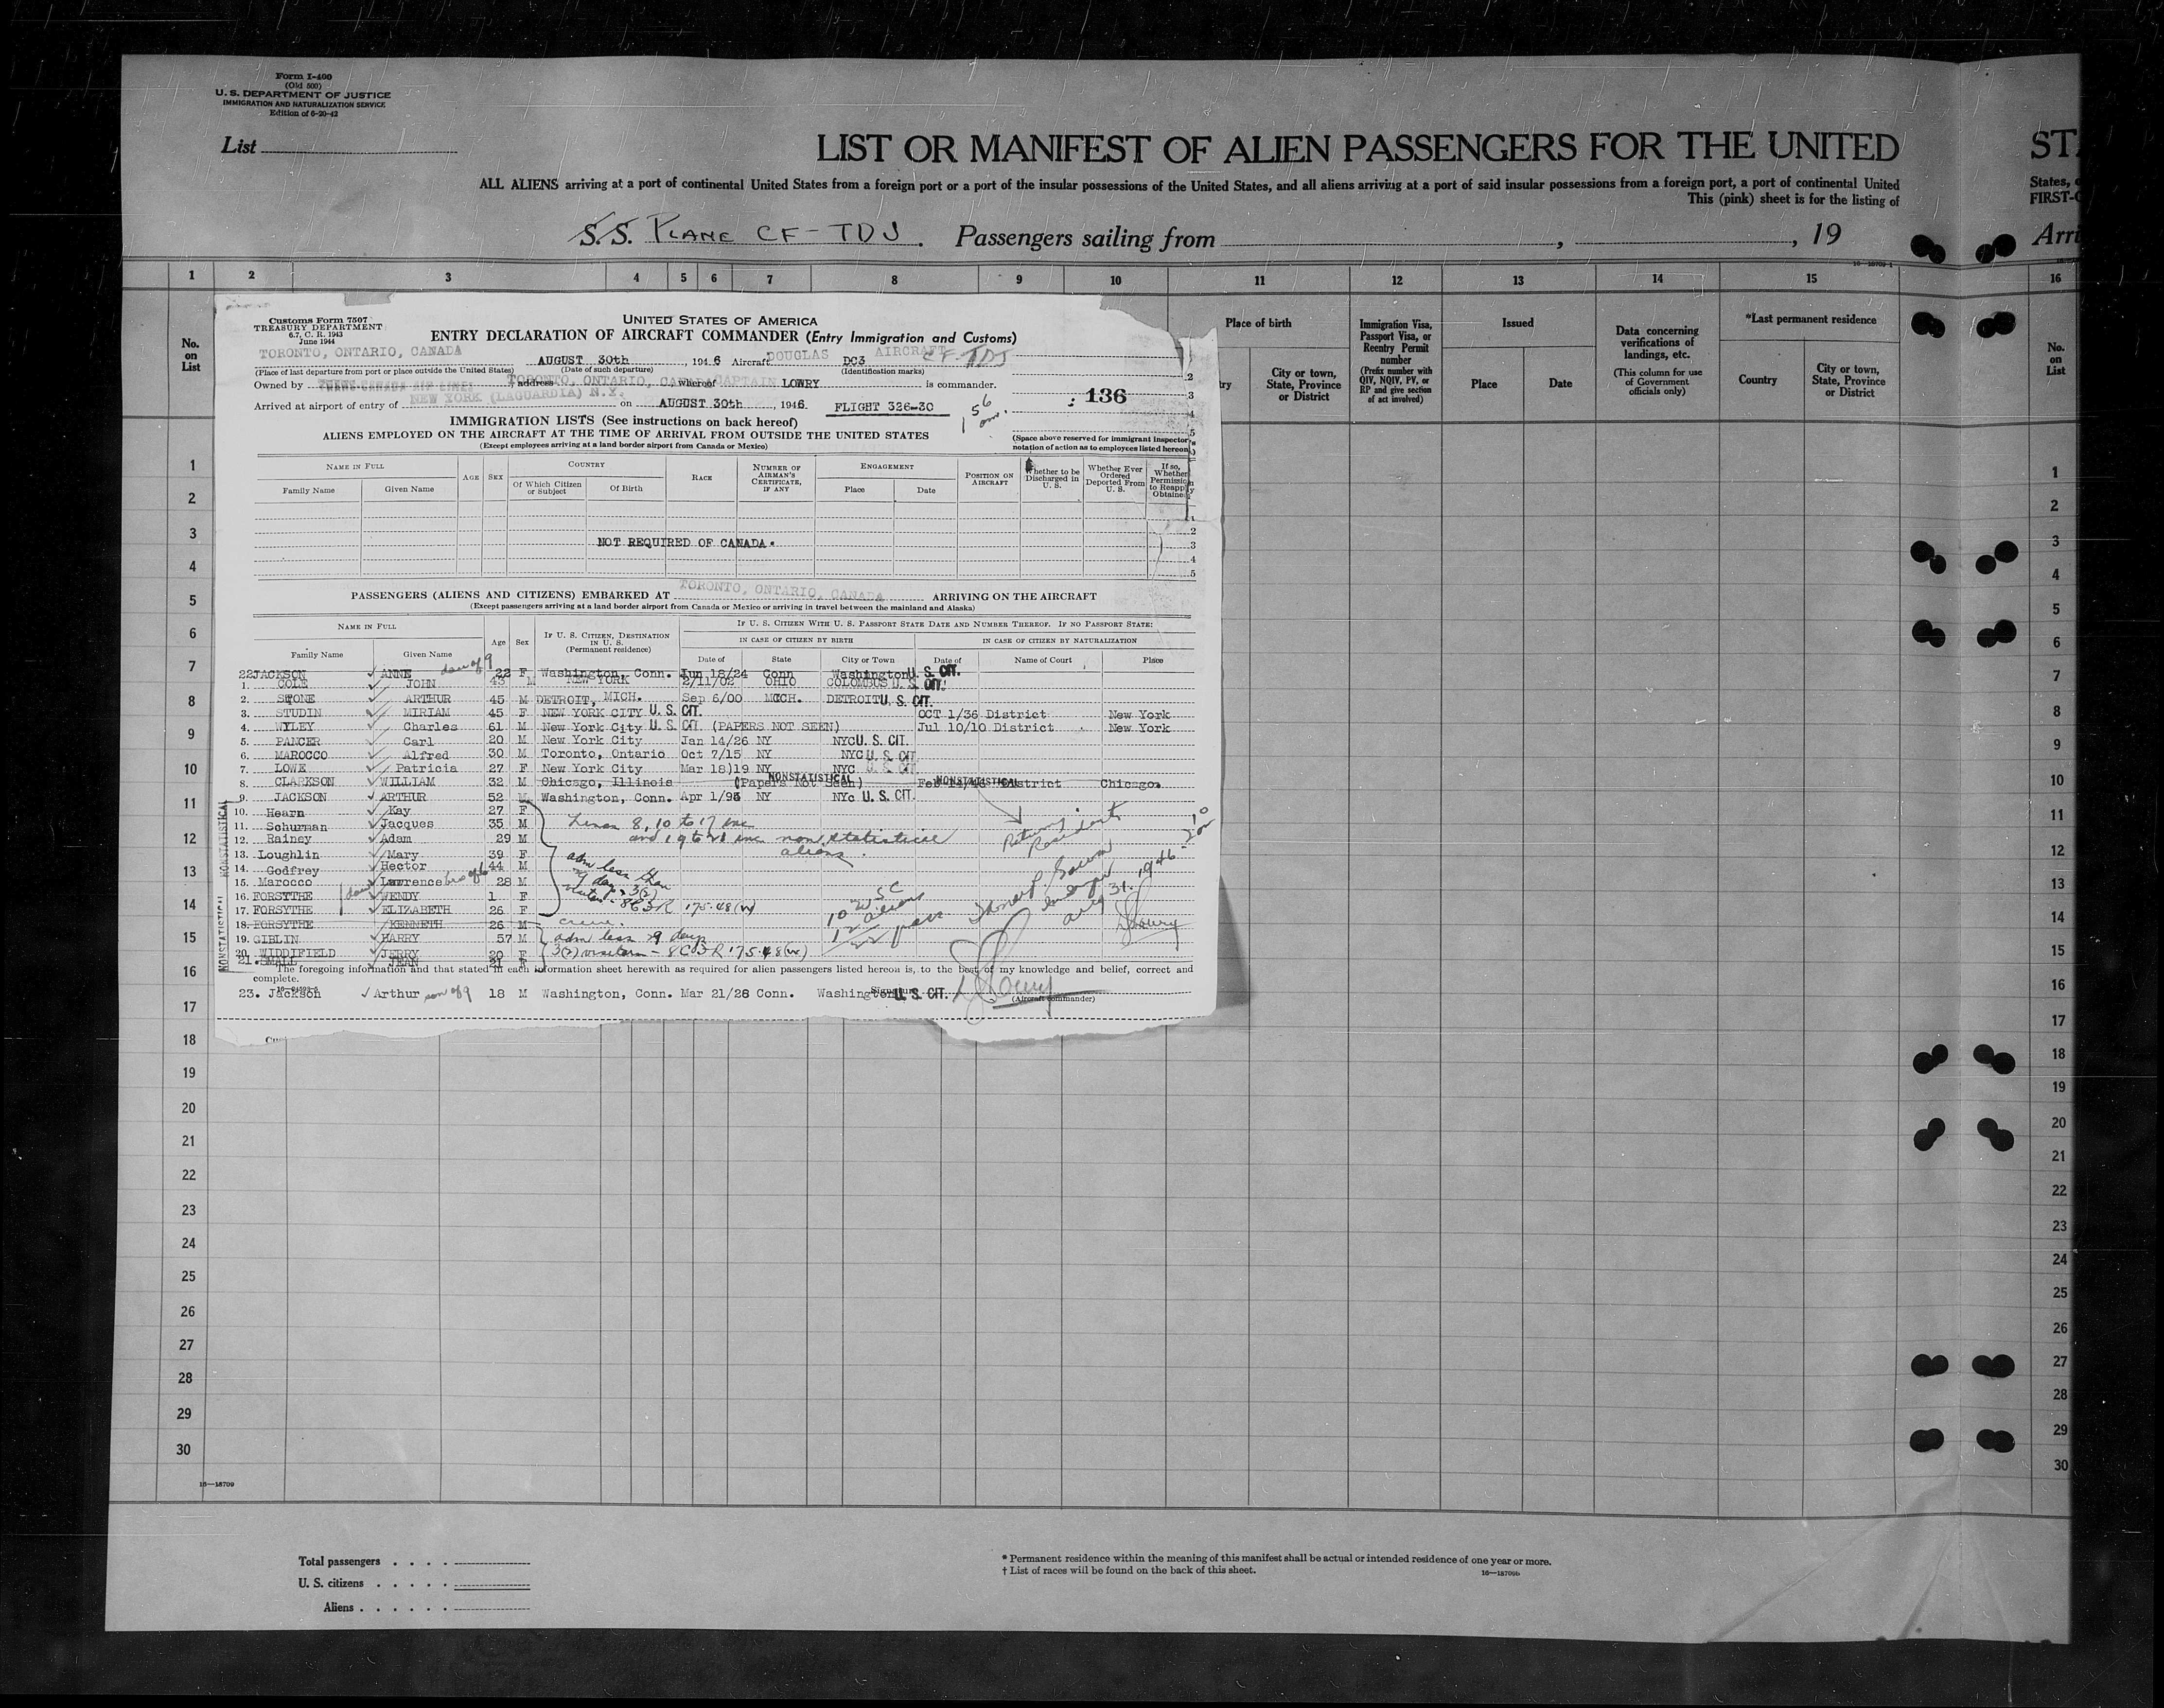 Form I-400
(Old 500)
U. S. DEPARTMENT OF JUSTICE
IMMIGRATION AND NATURALIZATION SERVICE
Edition of 6-20-42
List
LIST OR MANIFEST OF ALIEN PASSENGERS FOR THE UNITED
ST
ALL ALIENS arriving at a port of continental United States from a foreign port or a port of the insular possessions of the United States, and all aliens arriving at a port of said insular possessions from a foreign port, a port of continental United
States,
This (pink) sheet is for the listing of
FIRST-
S.S. PLANE CF-TDJ. Passengers sailing from , , 19
Arri
1 2 3 4 5 6 7 8 9 10 11 12 13 14 15 16
No. on List
Place of birth
City or town, State, Province or District
Immigration Visa, Passport Visa, or Reentry Permit number
(Prefix number with QIV, NQIV, PV, or RP and give section of act involved)
Issued
Place Date
Data concerning verifications of landings, etc.
(This column for use of Government officials only)
*Last permanent residence
Country
City or town, State, Province or District
No. on List
Customs Form 7507
TREASURY DEPARTMENT
6.7, C. R. 1943
June 1944
UNITED STATES OF AMERICA
ENTRY DECLARATION OF AIRCRAFT COMMANDER (Entry Immigration and Customs)
TORONTO, ONTARIO, CANADA AUGUST 30th 1946 Aircraft DOUGLAS AIRCRAFT DC3 CF-TDJ
(Place of last departure from port or place outside the United States) (Date of such departure) (Identification marks)
Owned by TRANS-CANADA AIR LINES address TORONTO, ONTARIO, CA whereof CAPTAIN LOWRY is commander.
Arrived at airport of entry of NEW YORK (LAGUARDIA) N.Y. on AUGUST 30th, 1946. FLIGHT 326-30
136
IMMIGRATION LISTS (See instructions on back hereof)
ALIENS EMPLOYED ON THE AIRCRAFT AT THE TIME OF ARRIVAL FROM OUTSIDE THE UNITED STATES
(Except employees arriving at a land border airport from Canada or Mexico)
(Space above reserved for immigrant inspector's notation of action as to employees listed hereon.)
NAME IN FULL AGE SEX COUNTRY RACE NUMBER OF AIRMAN'S CERTIFICATE, IF ANY ENGAGEMENT POSITION ON AIRCRAFT Whether to be Discharged in U. S. Whether Ever Ordered Deported From U. S. If so, Whether Permission to Reapply Obtained
Family Name Given Name Of Which Citizen or Subject Of Birth Place Date
NOT REQUIRED OF CANADA.
PASSENGERS (ALIENS AND CITIZENS) EMBARKED AT TORONTO, ONTARIO, CANADA ARRIVING ON THE AIRCRAFT
(Except passengers arriving at a land border airport from Canada or Mexico or arriving in travel between the mainland and Alaska)
NAME IN FULL Age Sex IF U. S. CITIZEN, DESTINATION IN U. S. (Permanent residence) IF U. S. CITIZEN WITH U. S. PASSPORT STATE DATE AND NUMBER THEREOF. IF NO PASSPORT STATE:
IN CASE OF CITIZEN BY BIRTH IN CASE OF CITIZEN BY NATURALIZATION
Family Name Given Name Date of State City or Town Date of Name of Court Place
22 JACKSON ANNE dau of 9 22 F Washington, Conn. Jun 18/24 Conn Washington U. S. CIT.
1. COLE JOHN 43 M NEW YORK 2/11/02 OHIO COLOMBUS U. S. CIT.
2. STONE ARTHUR 45 M DETROIT, MICH. Sep 6/00 MICH. DETROIT U. S. CIT.
3. STUDIN MIRIAM 45 F NEW YORK CITY U. S. CIT. OCT 1/36 District New York
4. WYLEY Charles 61 M New York City U. S. CIT (PAPERS NOT SEEN) Jul 10/10 District New York
5. PANCER Carl 20 M New York City Jan 14/26 NY NYC U. S. CIT.
6. MAROCCO Alfred 30 M Toronto, Ontario Oct 7/15 NY NYC U. S. CIT.
7. LOWE Patricia 27 F New York City Mar 18)19 NY NYC U. S. CIT
8. CLARKSON WILLIAM 32 M Chicago, Illinois (Papers Not Seen) NONSTATISTICAL NONSTATISTICAL District Chicago.
9. JACKSON ARTHUR 52 M Washington, Conn. Apr 1/94 NY NYc U. S. CIT.
10. Hearn Kay 27 F
11. Schurman Jacques 35 M Lines 8, 10 to 17 inc
12. Rainey Adam 29 M and 19 to 21 inc nonstatistical aliens.
Returning Residents
13. Loughlin Mary 39 F
14. Godfrey Hector 44 M adm less than
15. Marocco Lawrence bro of 6 28 M 9 days 3(2)
16. FORSYTHE WENDY 1 F visitors - 8C3R 175.48(w)
17. FORSYTHE ELIZABETH 26 F
18. FORSYTHE KENNETH 26 M
19. GIBLIN HARRY 57 M adm less 9 days
20. WIDDIFIELD JERRY 20 F 3(2) visitors - 8C3R 175.48(w)
21. SMALL JEAN 21 F
NONSTATISTICAL NONSTATISTICAL
10 USC
12 aliens
22 pass
Aug 31, 1946
The foregoing information and that stated in each information sheet herewith as required for alien passengers listed hereon is, to the best of my knowledge and belief, correct and
complete.
23. Jackson Arthur son of 9 18 M Washington, Conn. Mar 21/28 Conn. Washington U. S. CIT.
Signature
(Aircraft commander)
1
2
3
4
5
6
7
8
9
10
11
12
13
14
15
16
17
18
19
20
21
22
23
24
25
26
27
28
29
30
16—18709
Total passengers
U. S. citizens
Aliens
* Permanent residence within the meaning of this manifest shall be actual or intended residence of one year or more.
† List of races will be found on the back of this sheet.
16—18709b